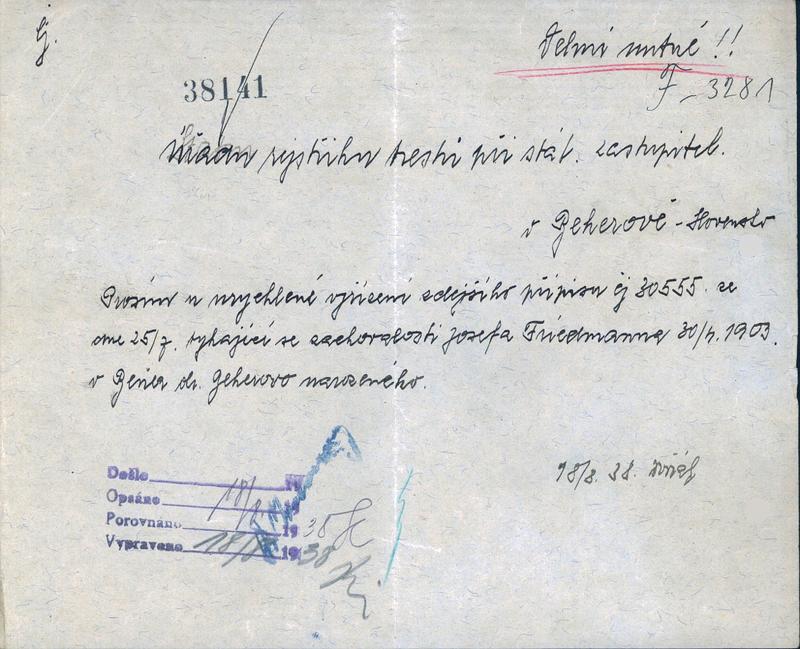 čj.
Velmi nutné !!
38141
F - 3281
Úřadu rejstříku trestů při stát. zastupitel.
v Beherově - Slovensko
Prosím o urychlené vyřízení zdejšího přípisu čj 30555 ze
dne 25/7. týkající se zachovalosti Josefa Friedmanna 30/4. 1903.
v okr. Beherovo narozeného.
18/8. 38.
Došlo 19
Opsáno 18/8 19
Porovnáno 19 38
Vypraveno 18/8 19 38